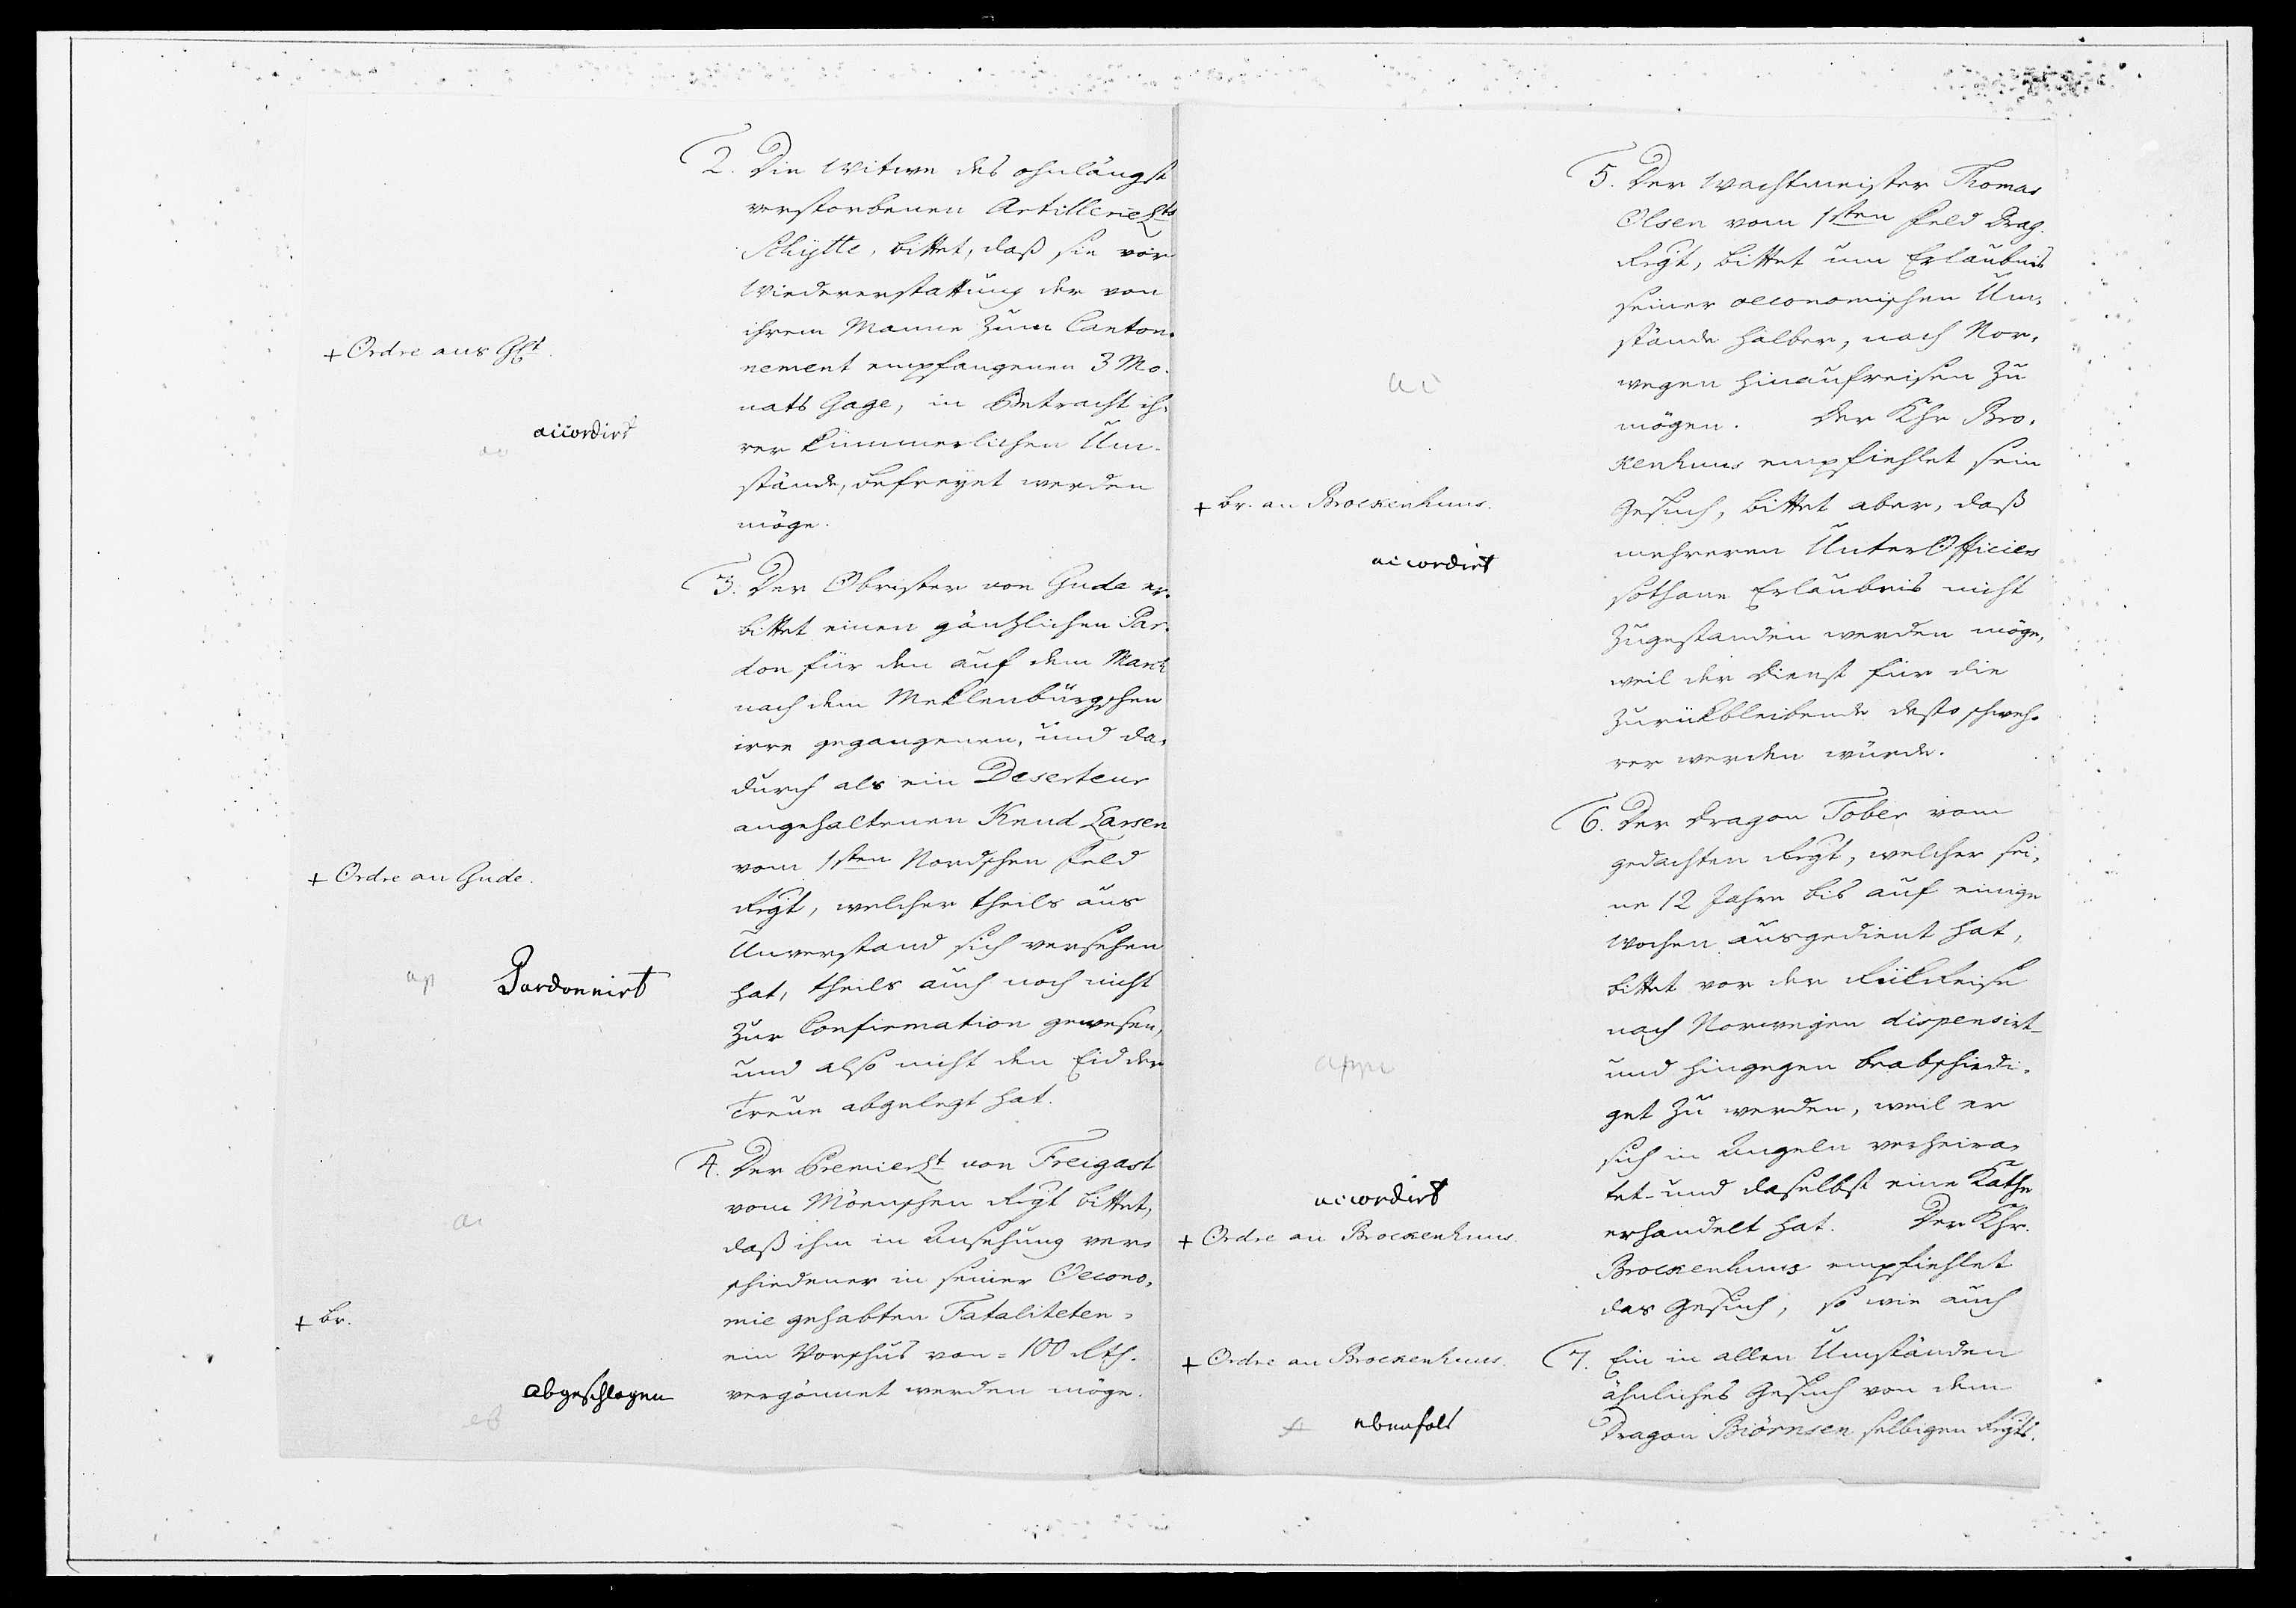 2. Die Witwe des ohnlängst
verstorbenen Artillerie Lts
Schÿtte, bittet, daß sie vor
Wiedererstattung der von
ihrem Manne zum Canton-
nement empfangenen 3 Mo-
nats Gage, in Betracht ih-
rer kümmerlichen Um-
stände, befreyet werden
möge.
+ Ordre aus
accordirt
ac
3. Der Obrister von Gude er-
bittet einen gäntzlichen Par-
don für den auf dem March
nach dem Meklenbürgschen
irre gegangenen, und da-
durch als ein Deserteur
angehaltenen Knud Larsen
vom 1sten Nordschen Feld
Regt, welcher theils aus
Unverstand sich versehen
hat, theils auch noch nicht
zur Confirmation gewesen,
und also nicht den Eid der
Treue abgelegt hat.
+ Ordre an Gude.
ap
Pardonnirt
4. Der Premier Lt von Freigast
vom Möenschen Regt bittet,
daß ihm in Ansehung ver-
schiedener in seiner Oecono-
mie gehabten Fataliteten-
ein Vorschus von = 100 Rth.
vergönnet werden möge.
ac
+ br.
abgeschlagen
ab
5. Der Wachtmeister Thomas
Olsen vom 1sten Feld Drag.
Regt, bittet um Erlaubnis
seiner oeconomischen Um-
stände halber, nach Nor-
wegen hinaufreisen zu
mögen. Der Khr Bro-
kenhuus empfiehlet sein
Gesuch, bittet aber, daß
mehreren Unter Officiers
sothane Erlaubnis nicht
zugestanden werden möge,
weil der Dienst für die
zurükbleibende desto schweh-
rer werden würde.
ac
+ br. an Brockenhuus.
accordirt
6. Der Dragon Tober vom
gedachten Regt, welcher sei-
ne 12 Jahre bis auf einige
Wochen ausgedient hat,
bittet vor der Rükreise
nach Norwegen dispensirt-
und hingegen beabschiedi-
get zu werden, weil er
sich in Angeln verheira-
tet- und daselbst eine Kathe
erhandelt hat. Der Khr.
Brockenhuus empfiehlet
das Gesuch, so wie auch
accordirt
+ Ordre an Brockenhuus.
7. Ein in allen Umständen
ähnliches Gesuch von dem
Dragon Biörnsen selbigen Regts.
+ Ordre an Brockenhuus.
ebenfals